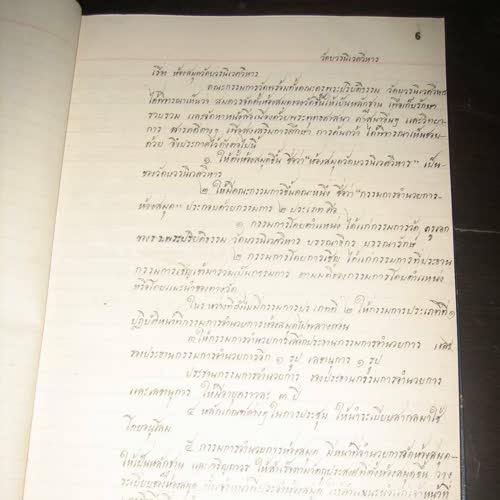 6
วัดบวรนิเวศวิหาร
เรื่อง ห้องสมุดวัดบวรนิเวศวิหาร
คณะกรรมการวัดพร้อมทั้งคณะครูพระปริยัติธรรม วัดบวรนิเวศวิหาร
ได้พิจารณาเห็นว่า สมควรจัดตั้งห้องสมุดของวัดขึ้นให้เป็นหลักฐาน เพื่อเก็บรักษา
รวบรวม และจัดหาหนังสือเนื่องด้วยพระพุทธศาสนา ศาสนาอื่นๆ และวิทยา
การ สารคดีต่างๆ เพื่อส่งเสริมการศึกษา การค้นคว้า ได้พิจารณาเห็นชอบ
ด้วย จึงประกาศไว้ดังต่อไปนี้
๑. ให้ตั้งห้องสมุดขึ้น ชื่อว่า "ห้องสมุดวัดบวรนิเวศวิหาร" เป็น
ของวัดบวรนิเวศวิหาร
๒. ให้มีคณะกรรมการขึ้นคณะหนึ่ง ชื่อว่า "กรรมการอำนวยการ
ห้องสมุด" ประกอบด้วยกรรมการ ๒ ประเภท คือ
๑ กรรมการโดยตำแหน่ง ได้แก่กรรมการวัด ครูเอก
ของ ร.ร.พระปริยัติธรรม วัดบวรนิเวศวิหาร บรรณาธิกร บรรณารักษ์
๒ กรรมการโดยการเชิญ ได้แก่กรรมการที่ประธาน
กรรมการเชิญเข้ามารวมเป็นกรรมการ ตามมติของกรรมการโดยตำแหน่ง
หรือโดยแนะนำของทางวัด
ในระหว่างที่ยังไม่มีกรรมการประเภทที่ ๒ ให้กรรมการประเภทที่ ๑
ปฏิบัติหน้าที่กรรมการอำนวยการห้องสมุดไปพลางก่อน
๓. ให้กรรมการอำนวยการเลือกประธานกรรมการอำนวยการ
รองประธานกรรมการอำนวยการอีก ๑ รูป เลขานุการ ๑ รูป
ประธานกรรมการอำนวยการ รองประธานกรรมการอำนวยการ
และเลขานุการ ให้มีอายุคราวละ ๓ ปี
๔ หลักเกณฑ์ต่างๆ ในการประชุม ให้นำระเบียบสากลมาใช้
โดยอนุโลม
๕ กรรมการอำนวยการห้องสมุด มีหน้าที่อำนวยการจัดห้องสมุด
ให้เป็นหลักฐาน และเจริญถาวร ให้สำเร็จตามวัตถุประสงค์ที่ตั้งห้องสมุดขึ้น วาง
ระเบียบของห้องสมุด